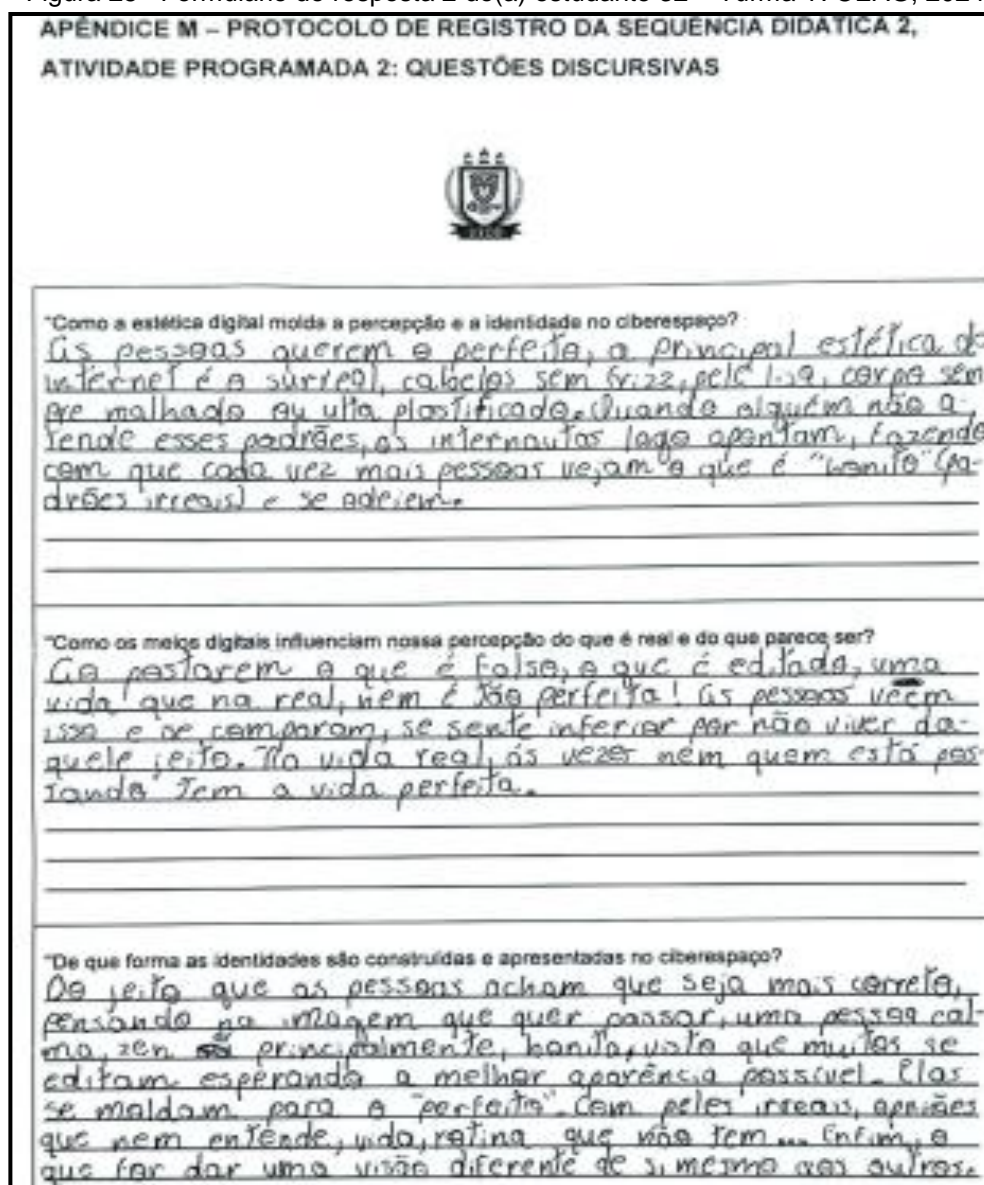 APÊNDICE M – PROTOCOLO DE REGISTRO DA SEQUÊNCIA DIDÁTICA 2,
ATIVIDADE PROGRAMADA 2: QUESTÕES DISCURSIVAS
"Como a estética digital molda a percepção e a identidade no ciberespaço?
As pessoas querem o perfeito, a principal estética da
internet é o surreal, cabelos sem frizz, pele lisa, corpo sem
pre malhado ou ulta plastificado. Quando alguém não a-
tende esses padrões, os internautas logo apontam, fazendo
com que cada vez mais pessoas vejam o que é "bonito" (pa-
drões irreais) e se
"Como os meios digitais influenciam nossa percepção do que é real e do que parece ser?
Ao postarem o que é falso, o que é editado, uma
vida que na real, nem é tão perfeita! As pessoas vêem
isso e se comparam, se sente inferior por não viver da-
quele jeito. Na vida real, ás vezes nem quem está pos-
tando tem a vida perfeita.
"De que forma as identidades são construídas e apresentadas no ciberespaço?
Do jeito que as pessoas acham que seja mais correto,
pensando na imagem que quer passar, uma pessoa cal-
ma, zen principalmente, bonita, visto que muitos se
editam esperando a melhor aparência possível. Elas
se moldam para o "perfeito". Com peles irreais, opniões
que nem entende, vida, rotina que não tem... Enfim, o
que for dar uma visão diferente de si mesmo aos outros.